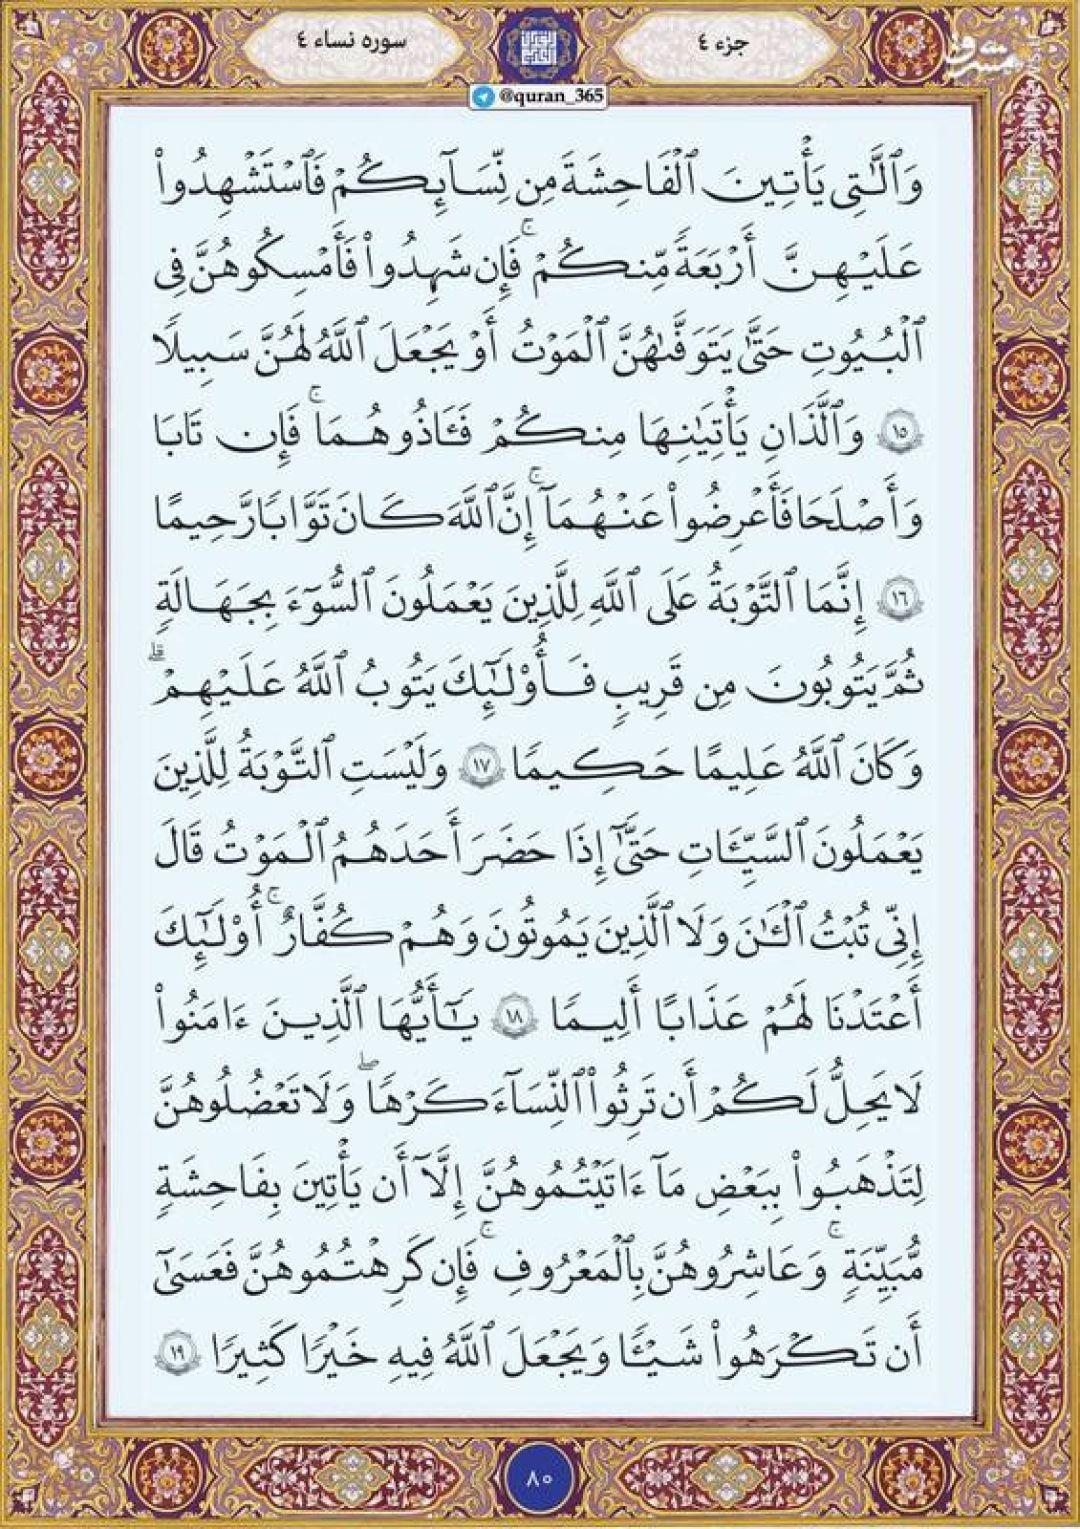 جزء ٤
سوره نساء ٤
مشرق
mashreghnews.ir
@quran_365
وَٱلَّـٰتِى يَأْتِينَ ٱلْفَـٰحِشَةَ مِن نِّسَآئِكُمْ فَٱسْتَشْهِدُوا۟
عَلَيْهِنَّ أَرْبَعَةً مِّنكُمْ ۚ فَإِن شَهِدُوا۟ فَأَمْسِكُوهُنَّ فِى
ٱلْبُيُوتِ حَتَّىٰ يَتَوَفَّىٰهُنَّ ٱلْمَوْتُ أَوْ يَجْعَلَ ٱللَّهُ لَهُنَّ سَبِيلًا
١٥ وَٱلَّذَانِ يَأْتِيَـٰنِهَا مِنكُمْ فَـَٔاذُوهُمَا ۖ فَإِن تَابَا
وَأَصْلَحَا فَأَعْرِضُوا۟ عَنْهُمَآ ۗ إِنَّ ٱللَّهَ كَانَ تَوَّابًا رَّحِيمًا
١٦ إِنَّمَا ٱلتَّوْبَةُ عَلَى ٱللَّهِ لِلَّذِينَ يَعْمَلُونَ ٱلسُّوٓءَ بِجَهَـٰلَةٍ
ثُمَّ يَتُوبُونَ مِن قَرِيبٍ فَأُو۟لَـٰٓئِكَ يَتُوبُ ٱللَّهُ عَلَيْهِمْ ۗ
وَكَانَ ٱللَّهُ عَلِيمًا حَكِيمًا ١٧ وَلَيْسَتِ ٱلتَّوْبَةُ لِلَّذِينَ
يَعْمَلُونَ ٱلسَّيِّـَٔاتِ حَتَّىٰٓ إِذَا حَضَرَ أَحَدَهُمُ ٱلْمَوْتُ قَالَ
إِنِّى تُبْتُ ٱلْـَٔـٰنَ وَلَا ٱلَّذِينَ يَمُوتُونَ وَهُمْ كُفَّارٌ ۚ أُو۟لَـٰٓئِكَ
أَعْتَدْنَا لَهُمْ عَذَابًا أَلِيمًا ١٨ يَـٰٓأَيُّهَا ٱلَّذِينَ ءَامَنُوا۟
لَا يَحِلُّ لَكُمْ أَن تَرِثُوا۟ ٱلنِّسَآءَ كَرْهًا ۖ وَلَا تَعْضُلُوهُنَّ
لِتَذْهَبُوا۟ بِبَعْضِ مَآ ءَاتَيْتُمُوهُنَّ إِلَّآ أَن يَأْتِينَ بِفَـٰحِشَةٍ
مُّبَيِّنَةٍ ۚ وَعَاشِرُوهُنَّ بِٱلْمَعْرُوفِ ۚ فَإِن كَرِهْتُمُوهُنَّ فَعَسَىٰٓ
أَن تَكْرَهُوا۟ شَيْـًٔا وَيَجْعَلَ ٱللَّهُ فِيهِ خَيْرًا كَثِيرًا ١٩
٨٠